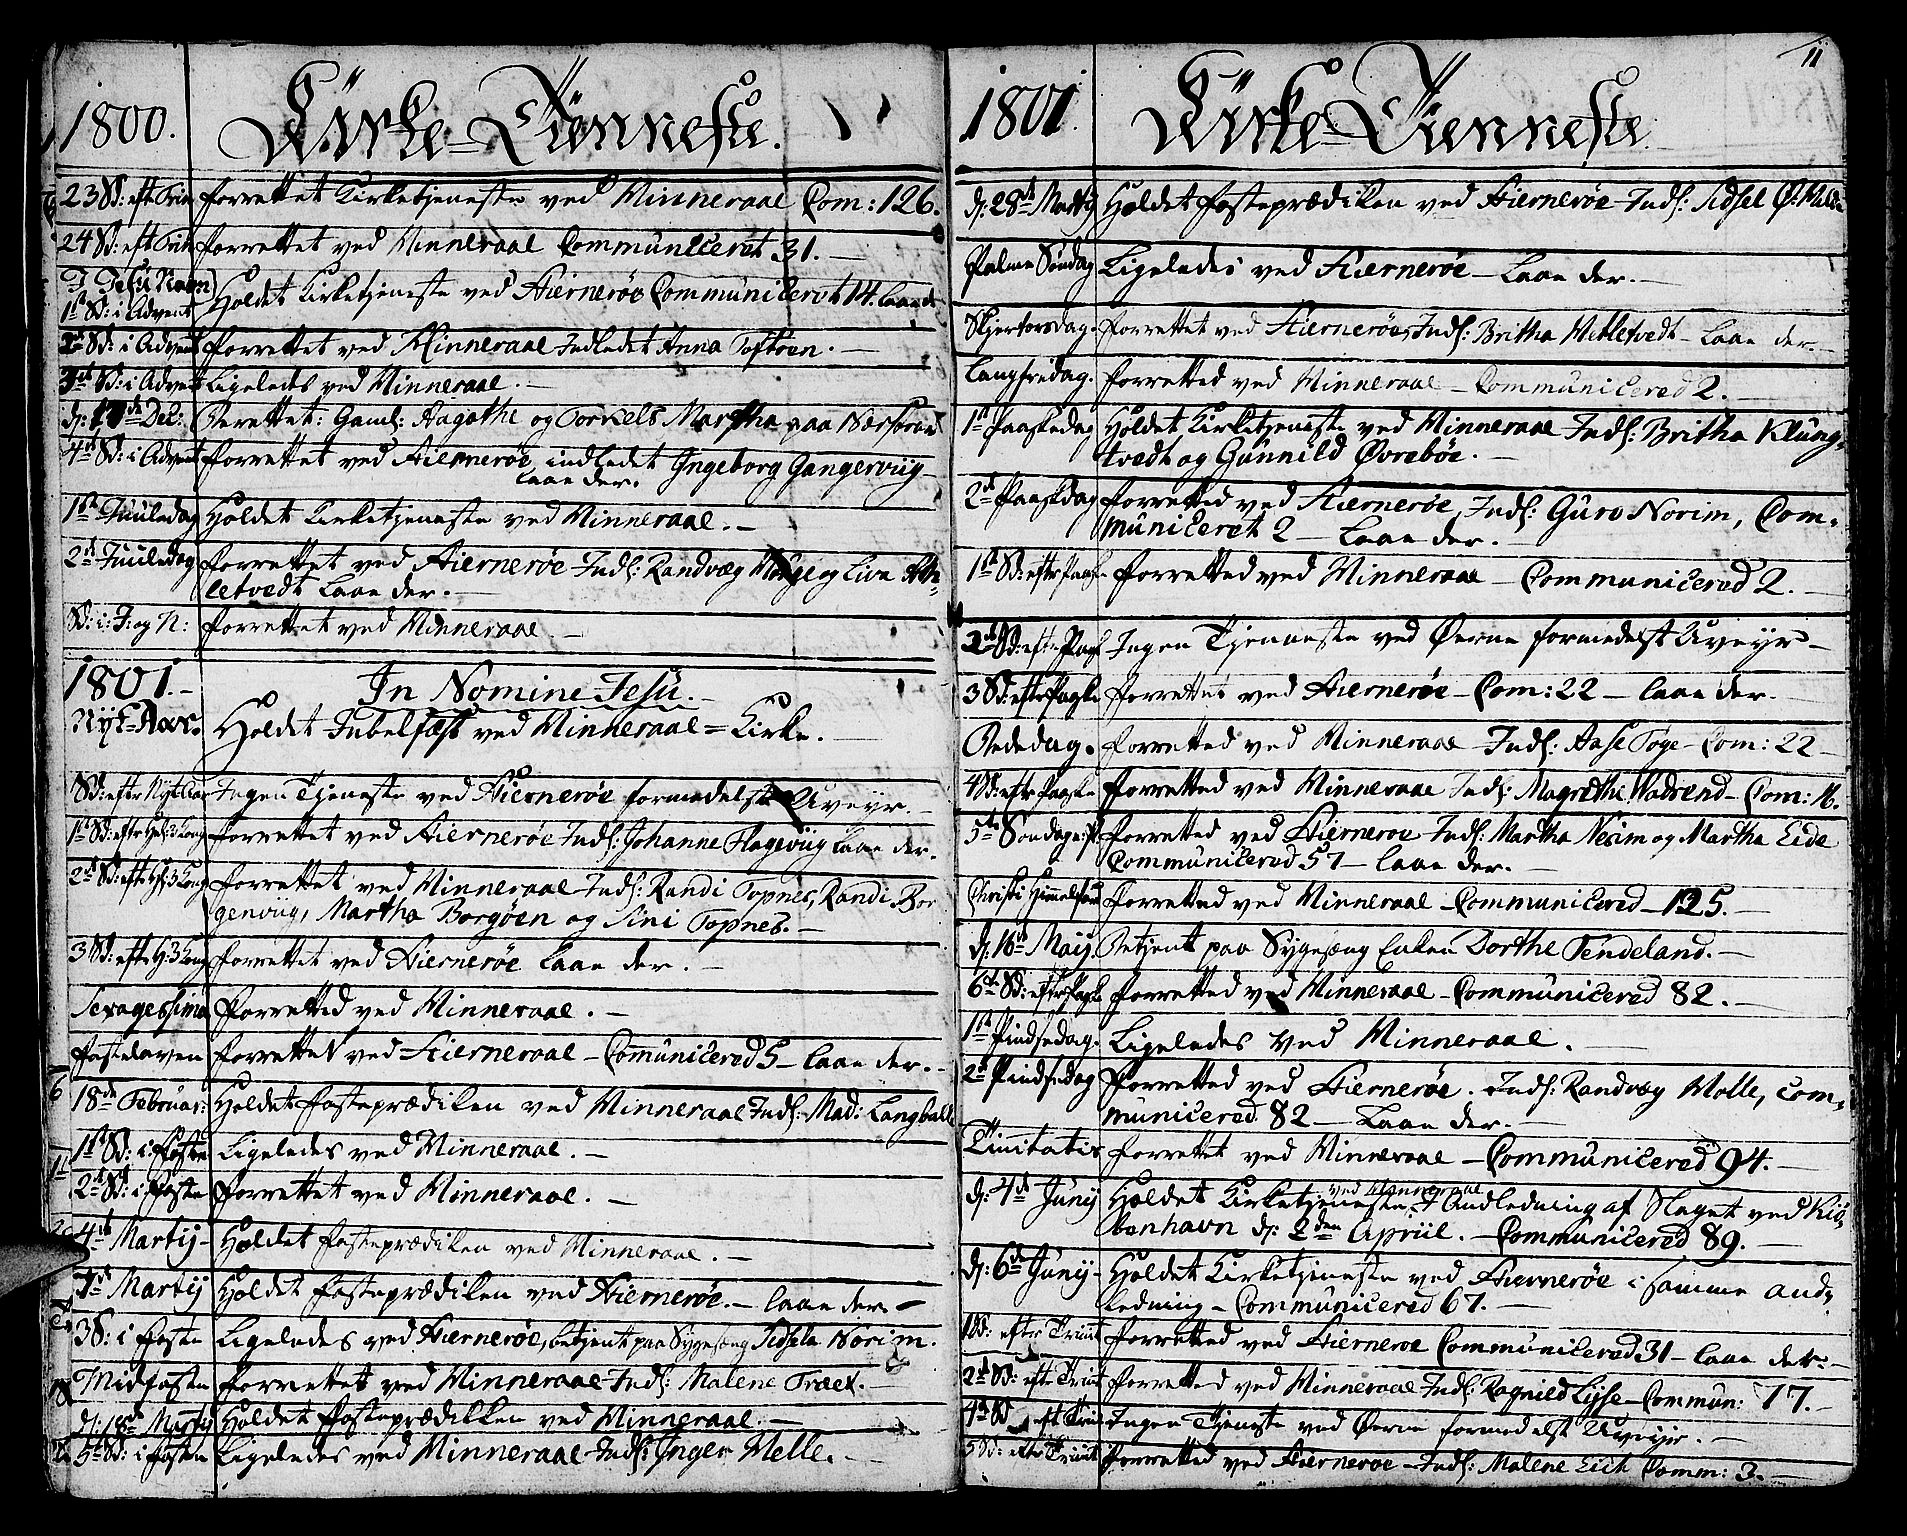 1800. Kirke-Tienneste.
23 Sd: eft Trin forrettet Kirketjeneste ved Vinneraae Com: 126.
24 Sd: eft Trin forrettet ved Vinneraae Communiceret 31. —
I Jesu Navn
1st Sd: i Advent Holdet Kirketjeneste ved Hiernerøe Communiceret 14. laae der
2d Sd: i Advent forrettet ved Vinneraae Indledet Anna Toftøen. —
3d Sd: i Advent Ligeledes ved Vinneraae. —
d: 17de Dec: Berettet: Gaml: Aagathe og Torkels Martha paa
4de Sd: i Advent forrettet ved Hiernerøe, indledet Ingeborg Gangervijg
laae der.
1ste Juuledag Holdet Kirketjeneste ved Vinneraae. —
2d Juuledag forrettet ved Hiernerøe Indl: Randvæg og Liva
letvedt laae der. —
Sd: i: J: og N: forrettet ved Vinneraae —
1801. — In Nomine Jesu. —
Nyt-Aar. Holdet Jubelfæst ved Vinneraae = Kirke. —
Sd: eftr NytAar Ingen Tjeneste ved Hiernerøe formedelst Uveyr. —
1st Sd: eftr Hel: 3 Kong forrettet ved Hiernerøe Indl: Johanne Hagevijg laae der.
2d Sd: eftr H: 3 Kong forrettet ved Vinneraae Indl: Randi Topnes, Randi Bor
genvijg, Martha Borgøen og Sini Topnes. —
3 Sd: eftr H: 3 Kong forrettet ved Hiernerøe laae der. —
Sexagessima forretted ved Vinneraae. —
Fastelaven forrettet ved Hierneraae — Communicered 5 — laae der. —
18de Februar: Holdet Fasteprædiken ved Vinneraae Indl: Mad: Langballe
1st Sd: i Faste Ligeledes ved Vinneraae. —
2d Sd: i Faste forrettet ved Vinneraae. —
4de Martij — Holdet Fasteprædiken ved Vinneraae. —
7de Martij Holdet Fasteprædiken ved Hiernerøe. — laae der —
3 S: i Faste Ligeledes ved Hiernerøe, betjent paa Sygesæng Sidsela Norim.
Midfasten forrettet ved Vinneraae Indl: Malene Træet. —
d: 18de Martij Holdet Fasteprædikken ved Vinneraae. —
5te Sd: i Fasten Ligeledes ved Vinneraae Indl: Inger Melle. —
11
1801. Kirke-Tienneste.
d: 28de Martij Holdet Fasteprædiken ved Hiernerøe Indl: Sidsel
Palme Søndag Ligeledes ved Hiernerøe — laae der. —
Skjertorsdag. forrettet ved Hiernerøe, Indl: Britha Metletvedt — laae der. —
Langfredag. forretted ved Vinneraae — Communicered 2. —
1st Paaskedag Holdet Kirketjeneste ved Vinneraae Indl: Britha Klung-
tvedt og Gunnild Øvrebøe. —
2d Paaskdag forretted ved Hiernerøe, Indl: Guro Norim, Com-
municeret 2 — laae der. —
1st Sd: eftr Paask forretted ved Vinneraae — Communicered 2. —
2d Sd: eftr Paask Ingen Tjenneste ved Øerne formedelst Uveyr —
3 Sd: eftr Paaske forrettet ved Hiernerøe — Com: 22 — laae der. —
Bededag. forretted ved Vinneraae — Indl: Aase Tøge — Com: 22 —
4 Sd: eftr Paaske forretted ved Vinneraae Indl: Magrethe Wadrend — Com: 16.
5te Søndag e: P forretted ved Hiernerøe Indl: Martha Nesim og Martha Eide
Communicered 57 — laae der. —
Christi Himmelfart forretted ved Vinneraae — Communicered — 125. —
d: 16de Maij. Betjent paa Sygesæng Enken Dorthe Tendeland. —
6te Sd: eftr Paaske forretted ved Vinneraae — Communicered 82. —
1st Pindsedag. Ligeledes ved Vinneraae. —
2d Pindsedag forretted ved Hiernerøe. Indl: Randvæg Molle, Com-
municered 82 — laae der. —
Trinitatis forrettet ved Vinneraae — Communicered 94. —
d: 4de Junij Holdet Kirketjeneste ved Vinneraae i Andledning af Slaget ved Kiø-
benhavn d: 2den Apriil. — Communicered 89. —
d: 6de Junij — Holdet Kirketjeneste ved Hiernerøe i samme and-
ledning — Communicered 67. —
1 Sd: eftr Trinit forretted ved Hiernerøe Communicered 31 — laae der. —
2d Sd: eftr Trinit forretted ved Vinneraae Indl: Ragnild Lysse — Commun: 17. —
4de Sd eft Trin Ingen Tjeneste ved Øerne formedelst Uveyr. —
5 Sd: eftr Trinit forretted ved Hiernerøe — Indl: Malene Eich Comm: 3. —